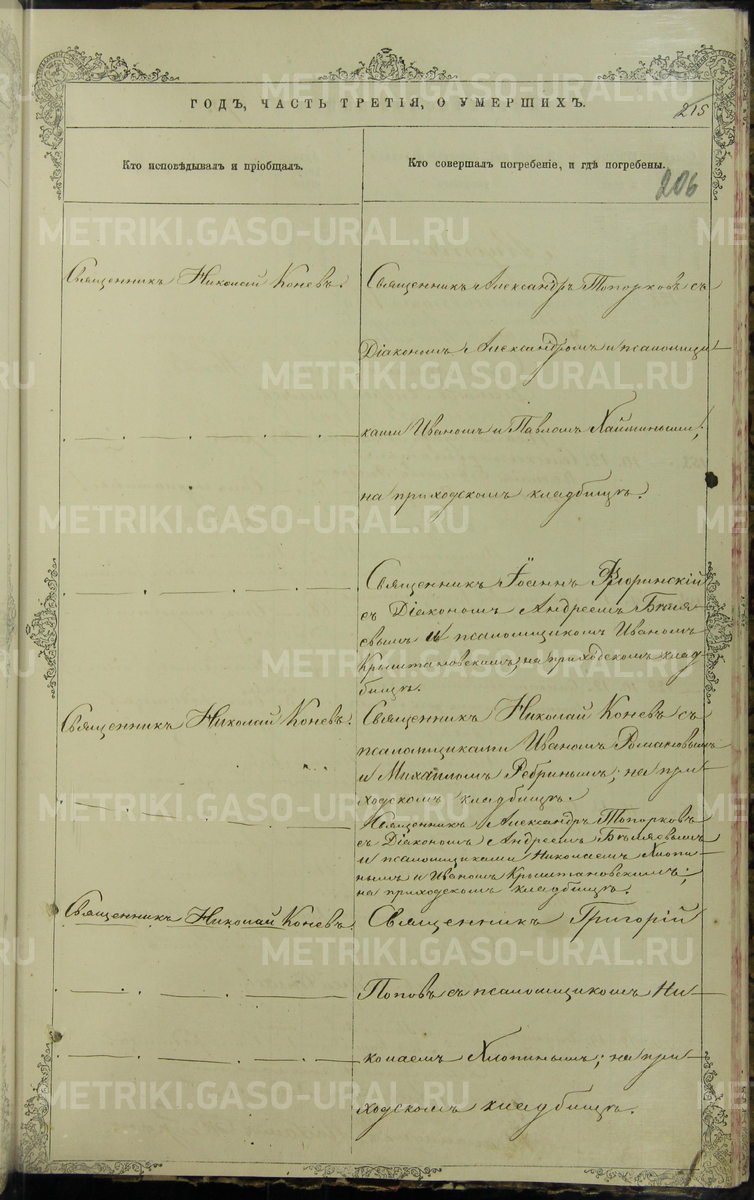 ГОДЪ, ЧАСТЬ ТРЕТІЯ, О УМЕРШИХЪ.
215
206
Кто исповѣдывалъ и пріобщалъ.
Кто совершалъ погребеніе, и гдѣ погребены.
Священникъ Николай Коневъ.
Священникъ Александръ Топорковъ съ
Діакономъ Александромъ и псаломщи
ками Иваномъ и Павломъ
на приходскомъ кладбищѣ.
Священникъ Іоаннъ Флоринскій
съ Діакономъ Андреемъ Бѣля
евымъ и псаломщикомъ Иваномъ
Крыштановскимъ, на приходскомъ клад
бищѣ.
Священникъ Николай Коневъ.
Священникъ Николай Коневъ съ
псаломщиками Иваномъ Романовымъ
и Михаиломъ Ребринымъ; на при
ходскомъ кладбищѣ.
Священникъ Александръ Топорковъ
съ Діакономъ Андреемъ Бѣляевымъ
и псаломщиками Николаемъ Хлопи
нымъ и Иваномъ Крыштановскимъ;
на приходскомъ кладбищѣ.
Священникъ Николай Коневъ.
Священникъ Григорій
Поповъ съ псаломщикомъ Ни
колаемъ Хлопинымъ; на при
ходскомъ кладбищѣ.
METRIKI.GASO-URAL.RU